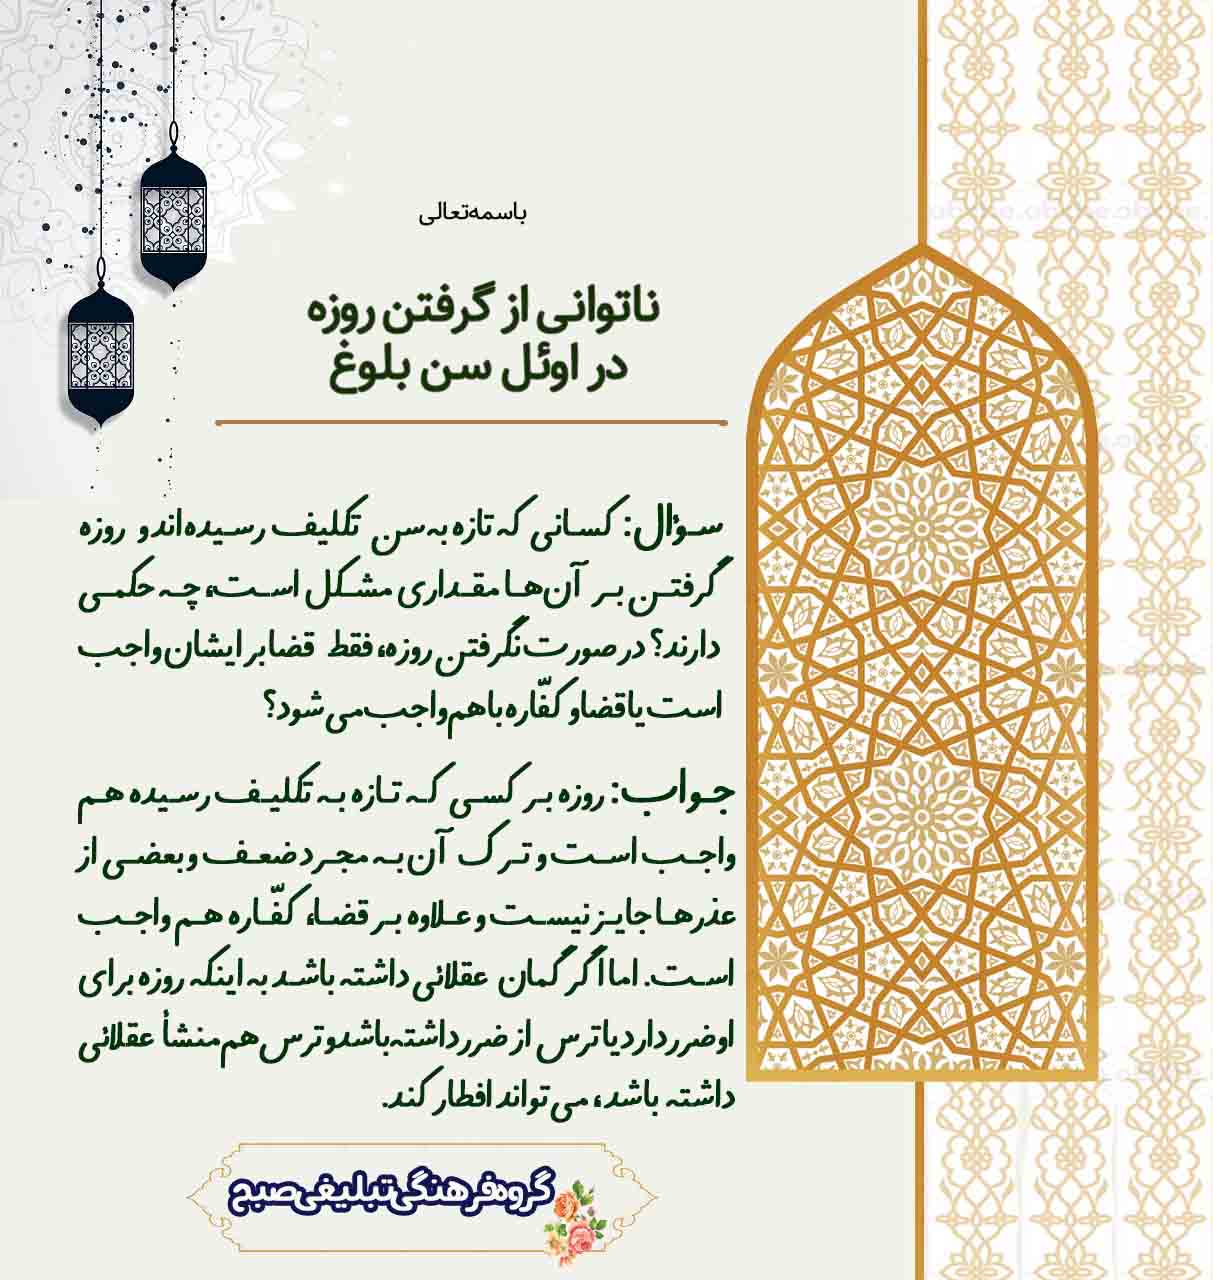 باسمه‌تعالی
ناتوانی از گرفتن روزه
در اوئل سن بلوغ
سؤال: کسانی که تازه به سن تکلیف رسیده‌اند و روزه
گرفتن بر آن‌ها مقداری مشکل است، چه حکمی
دارند؟ در صورت نگرفتن روزه، فقط قضا بر ایشان واجب
است یا قضا و کفّاره با هم واجب می شود؟
جواب: روزه بر کسی که تازه به تکلیف رسیده هم
واجب است و ترک آن به مجرد ضعف و بعضی از
عذرها جایز نیست و علاوه بر قضا، کفّاره هم واجب
است. اما اگر گمان عقلائی داشته باشد به اینکه روزه برای
او ضرر دارد یا ترس از ضرر داشته باشد و ترس هم منشأ عقلائی
داشته باشد، می تواند افطار کند.
گروه فرهنگی تبلیغی صبح